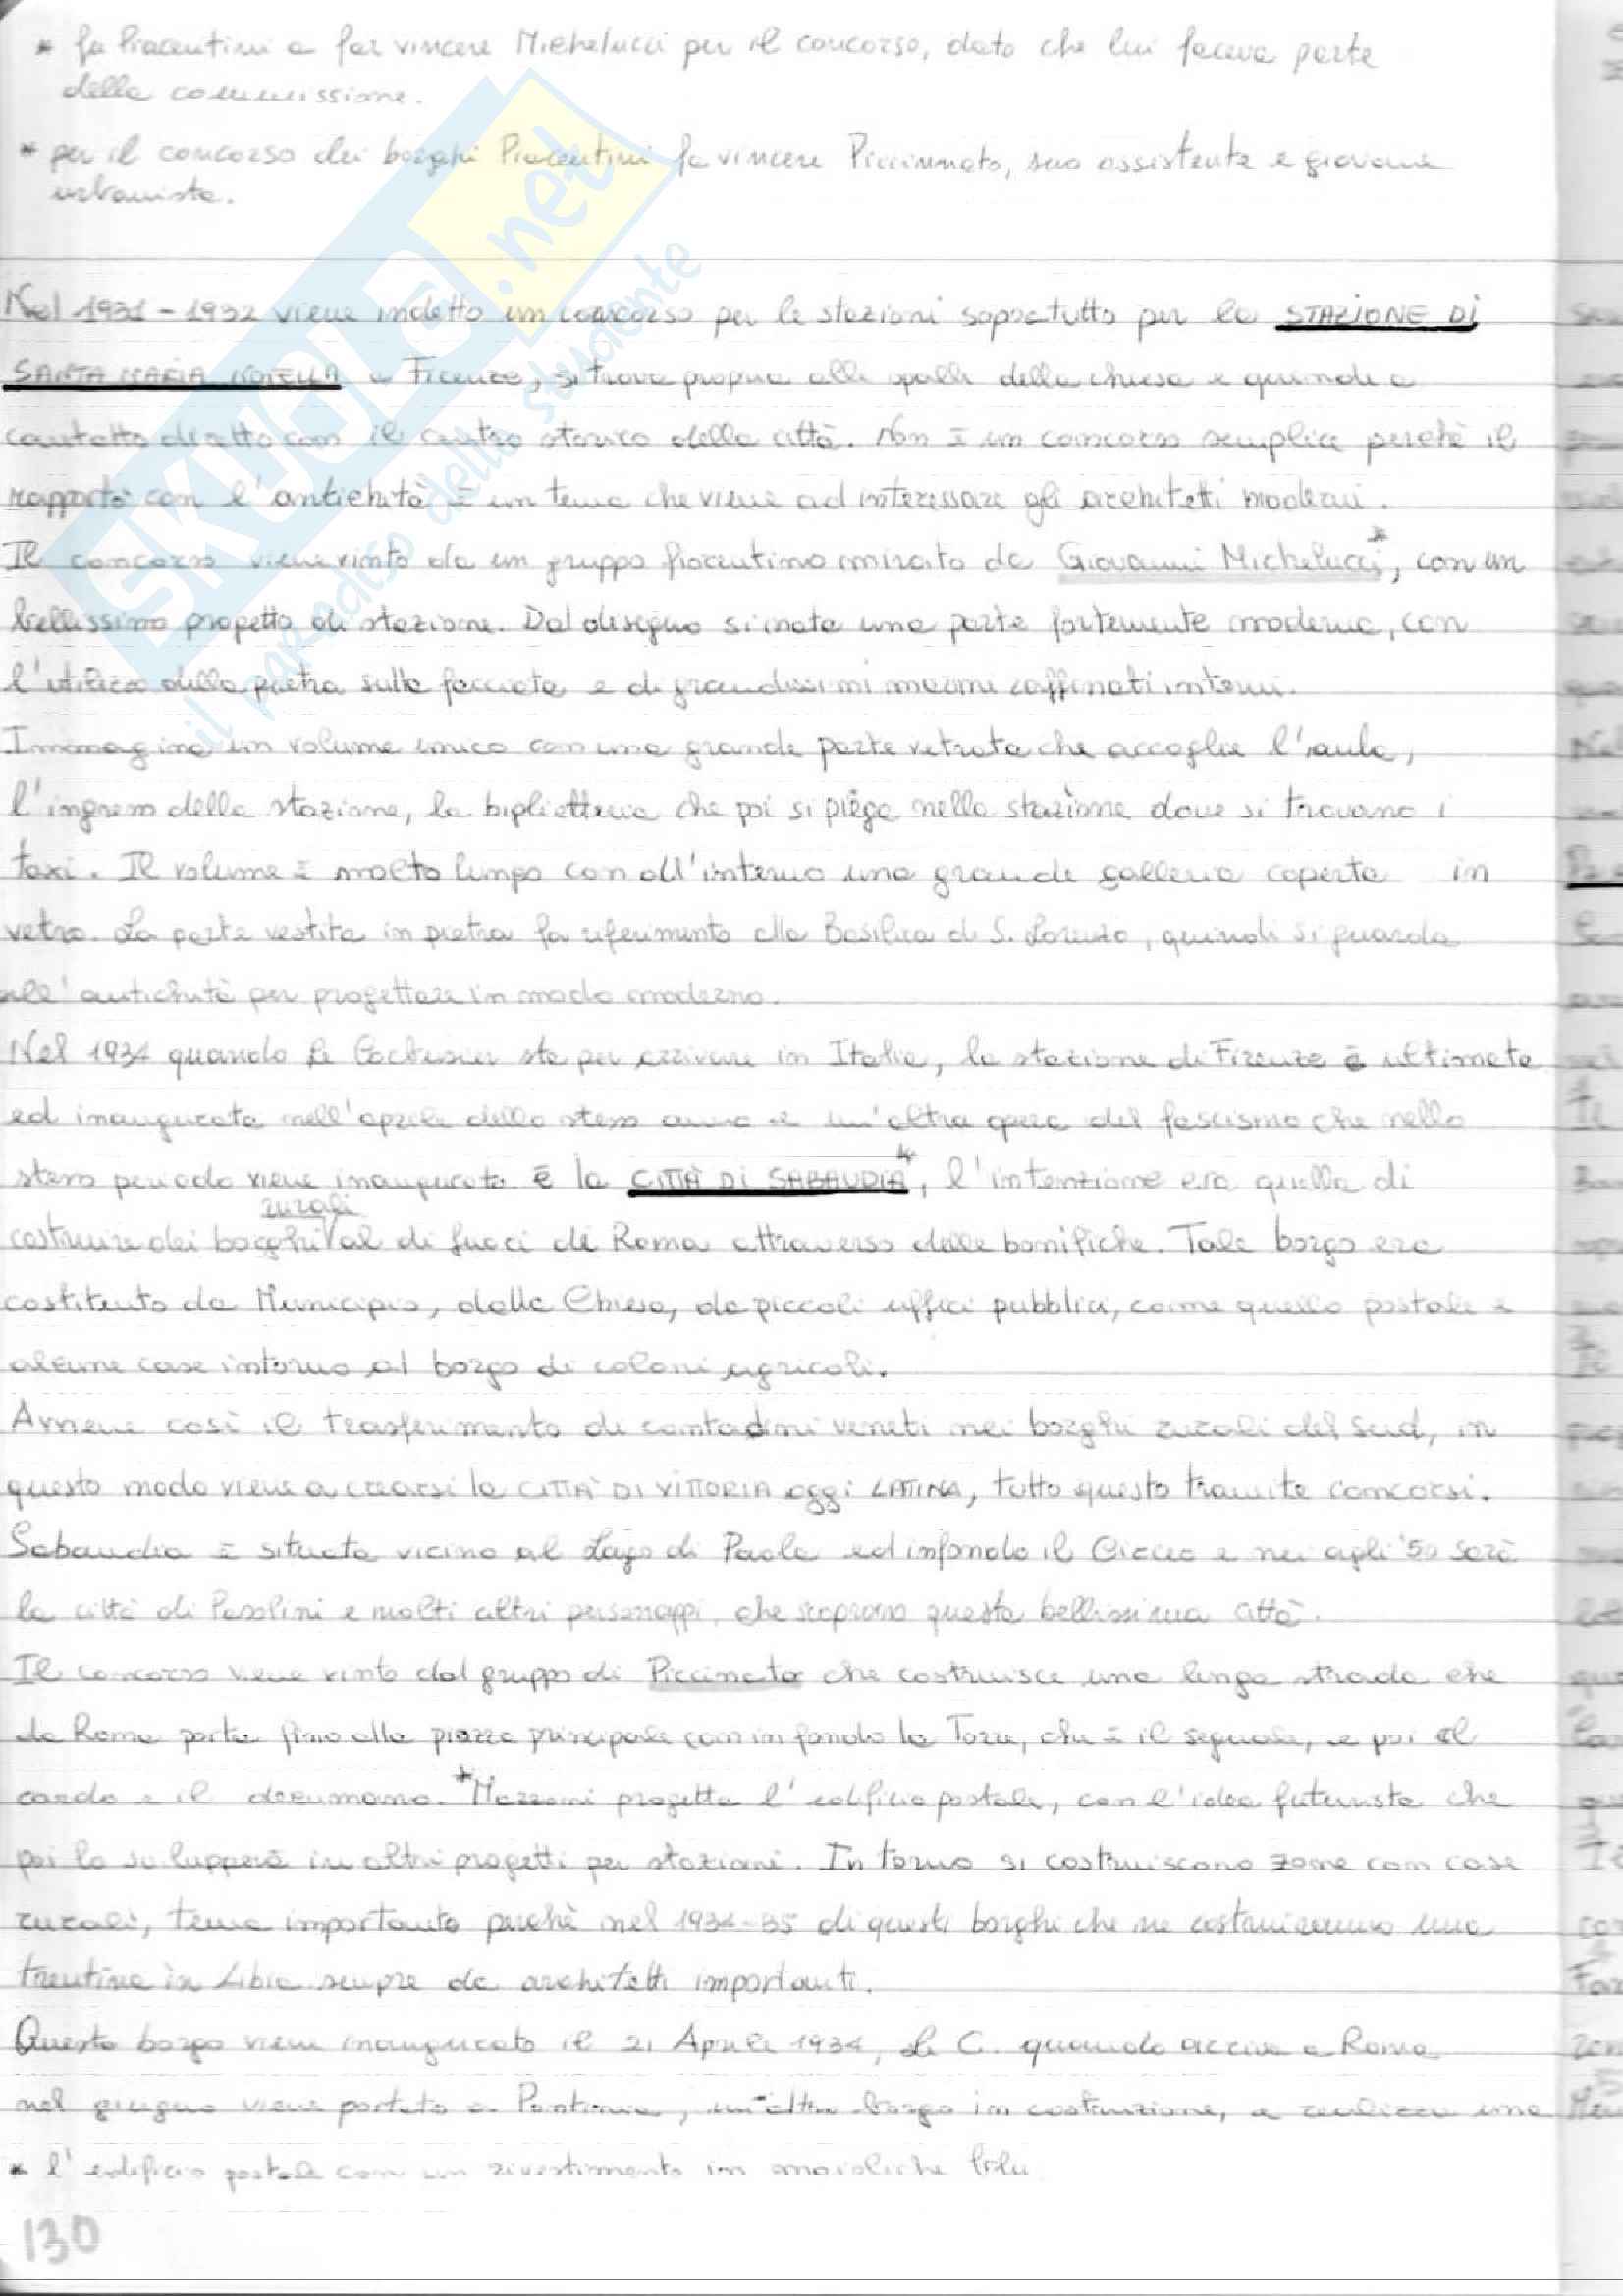 * fu Piacentini a far vincere Michelucci per il concorso, dato che lui faceva parte
della commissione.
* per il concorso dei borghi Piacentini fa vincere Piccinnato, suo assistente e giovane
urbanista.
Nel 1931-1932 viene indetto un concorso per le stazioni sopratutto per la STAZIONE DI
SANTA MARIA NOVELLA a Firenze, si trova proprio alle spalle della chiesa e quindi a
contatto diretto con il centro storico della città. Non è un concorso semplice perché il
rapporto con l'antichità è un tema che viene ad interessare gli architetti moderni.
Il concorso viene vinto da un gruppo fiorentino mirato da Giovanni Michelucci*, con un
bellissimo progetto di stazione. Dal disegno si nota una parte fortemente moderna, con
l'utilizzo della pietra sulla facciata e di grandissimi raffinati interni.
Immagina un volume unico con una grande parte vetrata che accoglie l'aula,
l'ingresso della stazione, la biglietteria che poi si piega nella stazione dove si trovano i
taxi. Il volume è molto lungo con all'interno una grande galleria coperta in
vetro. La parte vestita in pietra fa riferimento alla Basilica di S. Lorenzo, quindi si guarda
all'antichità per progettare in modo moderno.
Nel 1934 quando Le Corbusier sta per arrivare in Italia, la stazione di Firenze è ultimata
ed inaugurata nell'aprile dello stesso anno e un'altra opera del fascismo che nello
stesso periodo viene inaugurata è la CITTÀ DI SABAUDIA*, l'intenzione era quella di
costruire dei borghi rurali al di fuori di Roma attraverso delle bonifiche. Tale borgo era
costituito da Municipio, dalla Chiesa, da piccoli uffici pubblici, come quello postale e
alcune case intorno al borgo di coloni agricoli.
Avviene così il trasferimento di contadini veneti nei borghi rurali del sud, in
questo modo viene a crearsi la CITTÀ DI VITTORIA oggi LATINA, tutto questo tramite concorsi.
Sabaudia è situata vicino al Lago di Paola ed infondo il Circeo e nei agli '50 sarà
la città di Pasolini e molti altri personaggi, che scoprono questa bellissima città.
Il concorso viene vinto dal gruppo di Piccinato che costruisce una lunga strada che
da Roma porta fino alla piazza principale con in fondo la Torre, che è il segnale, e poi il
cardo e il decumano. *Mazzoni progetta l'edificio postale, con l'idea futurista che
poi lo svilupperà in altri progetti per stazioni. Intorno si costruiscono zone con case
rurali, tema importante perché nel 1934-35 di questi borghi che ne costruiranno una
trentina in Libia sempre da architetti importanti.
Questo borgo viene inaugurato il 21 Aprile 1934, Le C. quando arriva a Roma
nel giugno viene portato a Pontinia, un altro borgo in costruzione, a realizza una
* l'edificio postale con un rivestimento in maioliche blu
130
SKUOLA.net
il paradiso dello studente